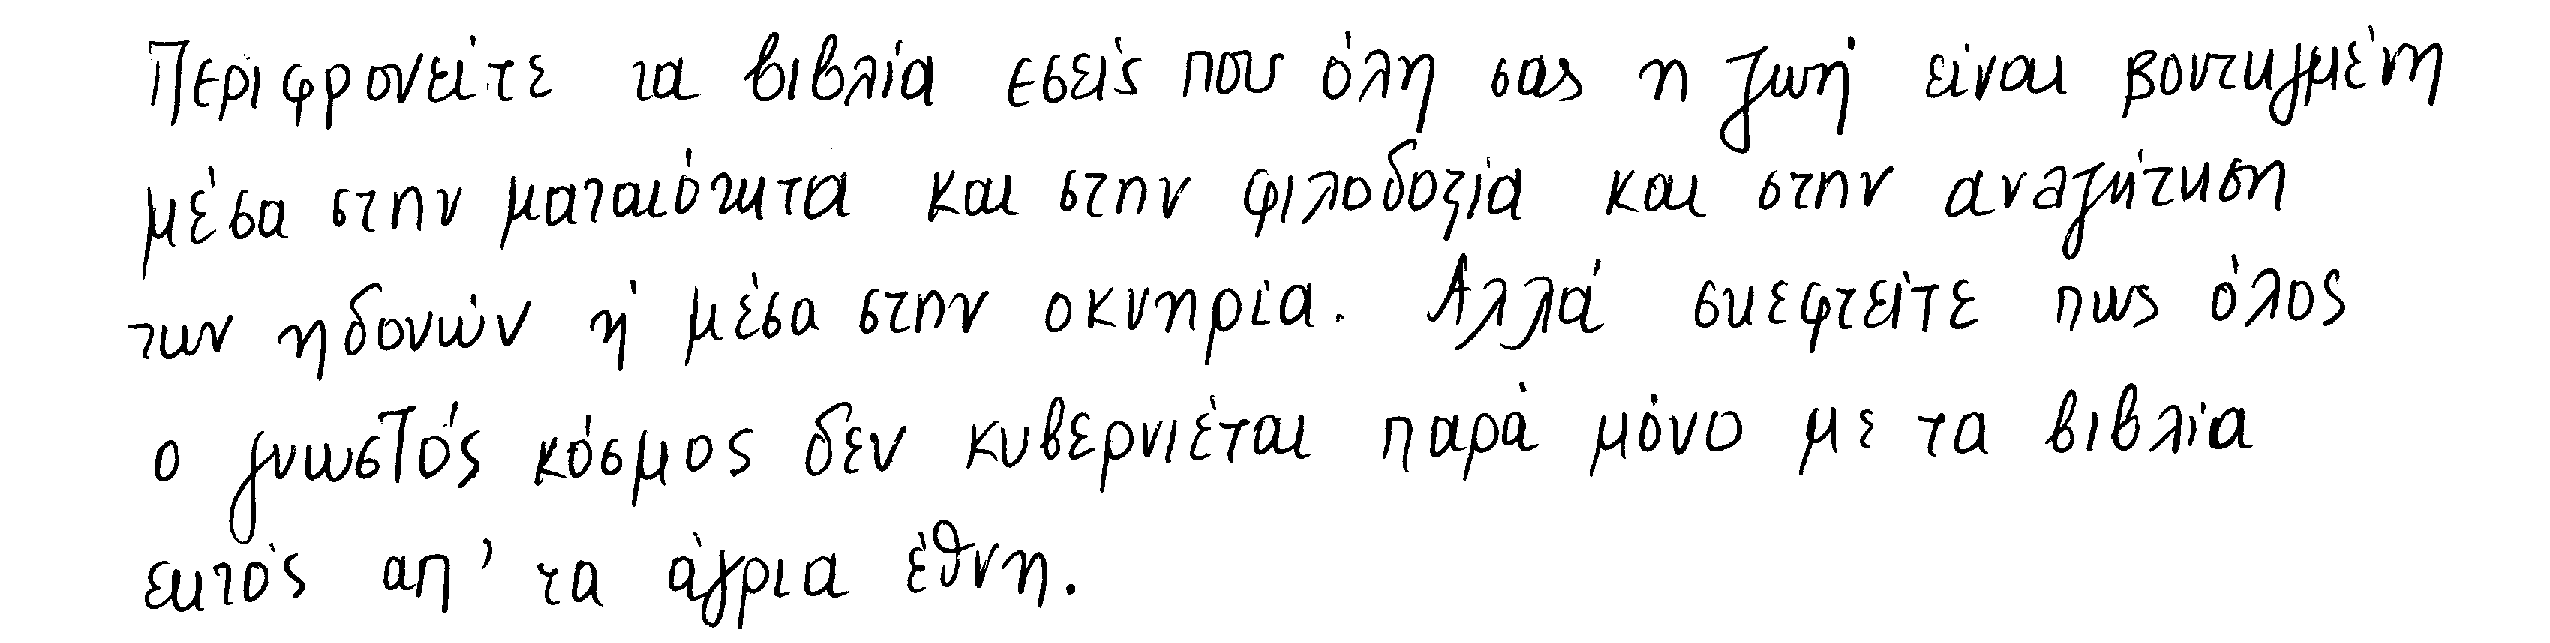 Περιφρονείτε τα βιβλία εσείς που όλη σας η ζωή είναι βουτηγμένη
μέσα στην ματαιότητα και στην φιλοδοξία και στην αναζήτηση
των ηδονών ή μέσα στην οκνηρία. Αλλά σκεφτείτε πως όλος
ο γνωστός κόσμος δεν κυβερνιέται παρά μόνο με τα βιβλία
εκτός απ' τα άγρια έθνη.